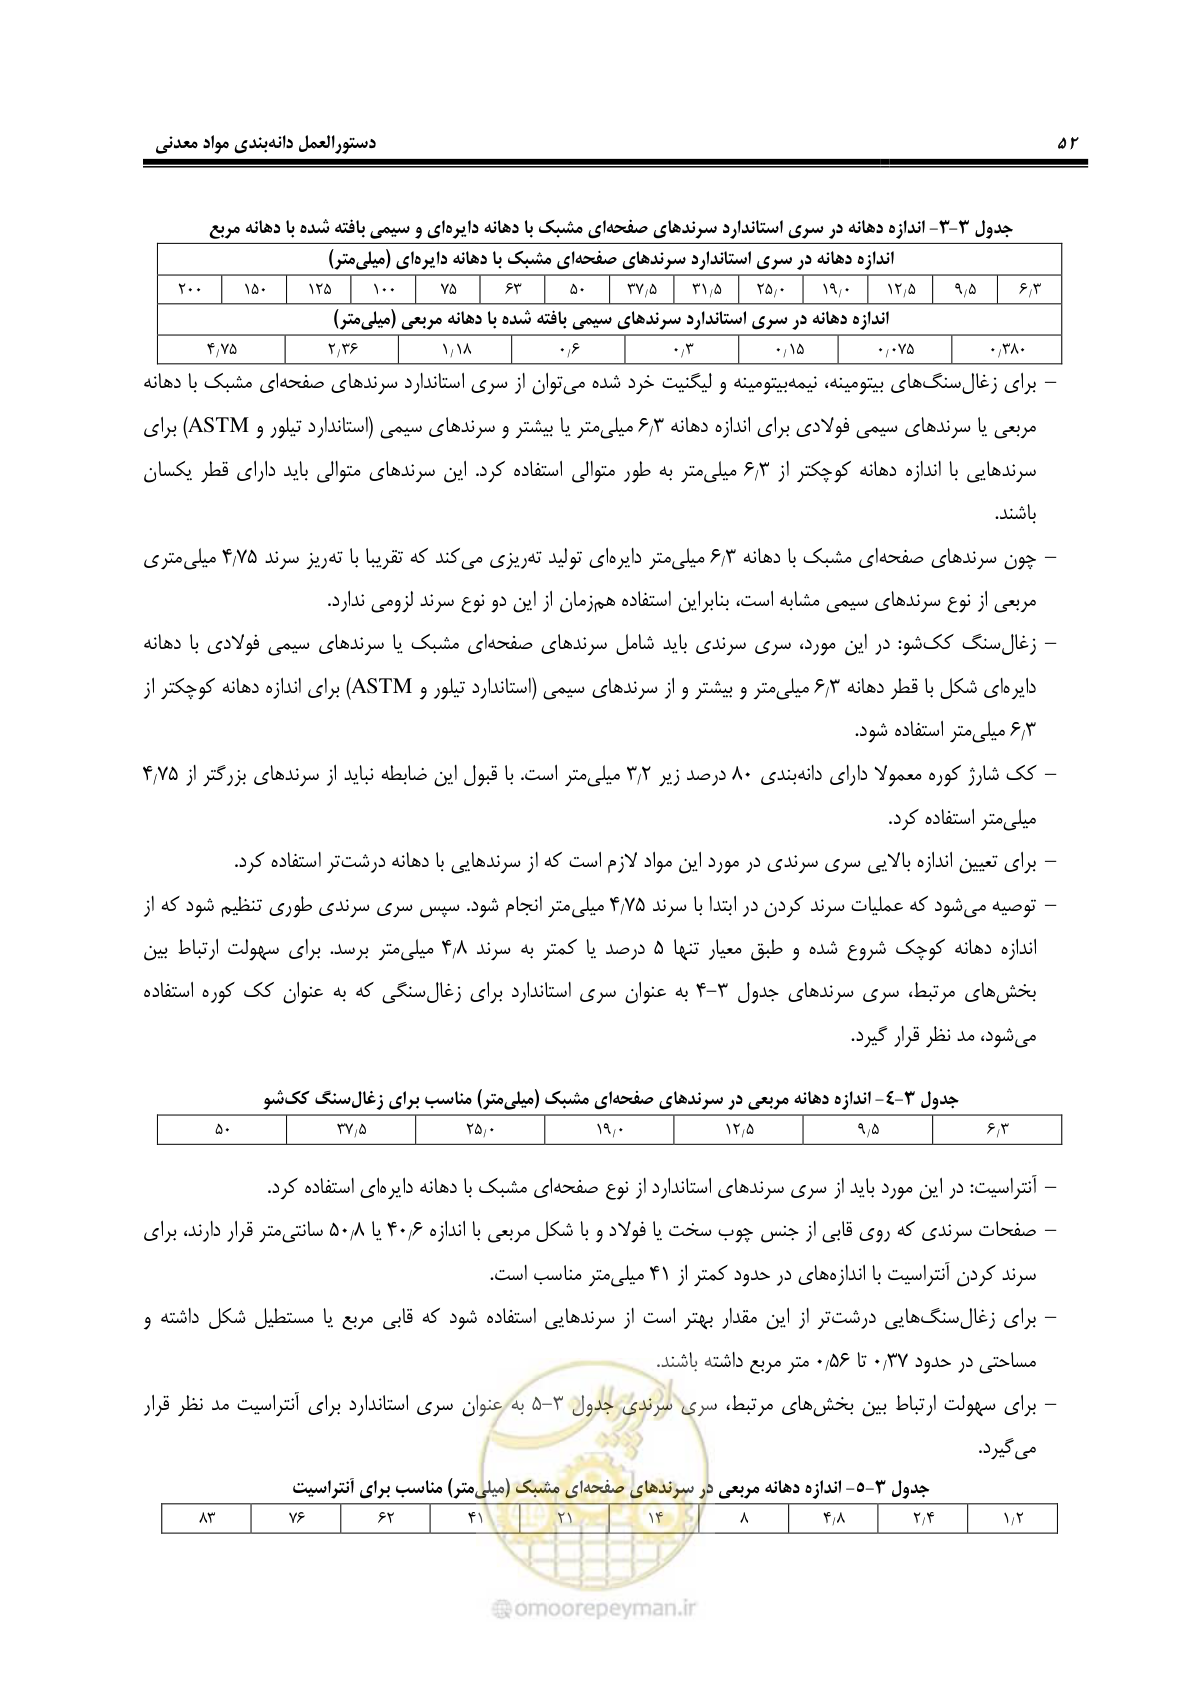 ۵۲ دستورالعمل دانه‌بندی مواد معدنی
جدول ۳-۳- اندازه دهانه در سری استاندارد سرندهای صفحه‌ای مشبک با دهانه دایره‌ای و سیمی بافته شده با دهانه مربع
اندازه دهانه در سری استاندارد سرندهای صفحه‌ای مشبک با دهانه دایره‌ای (میلی‌متر)
۶٫۳ ۹٫۵ ۱۲٫۵ ۱۹٫۰ ۲۵٫۰ ۳۱٫۵ ۳۷٫۵ ۵۰ ۶۳ ۷۵ ۱۰۰ ۱۲۵ ۱۵۰ ۲۰۰
اندازه دهانه در سری استاندارد سرندهای سیمی بافته شده با دهانه مربعی (میلی‌متر)
۰٫۳۸۰ ۰٫۰۷۵ ۰٫۱۵ ۰٫۳ ۰٫۶ ۱٫۱۸ ۲٫۳۶ ۴٫۷۵
– برای زغال‌سنگ‌های بیتومینه، نیمه‌بیتومینه و لیگنیت خرد شده می‌توان از سری استاندارد سرندهای صفحه‌ای مشبک با دهانه
مربعی یا سرندهای سیمی فولادی برای اندازه دهانه ۶٫۳ میلی‌متر یا بیشتر و سرندهای سیمی (استاندارد تیلور و ASTM) برای
سرندهایی با اندازه دهانه کوچکتر از ۶٫۳ میلی‌متر به طور متوالی استفاده کرد. این سرندهای متوالی باید دارای قطر یکسان
باشند.
– چون سرندهای صفحه‌ای مشبک با دهانه ۶٫۳ میلی‌متر دایره‌ای تولید ته‌ریزی می‌کند که تقریبا با ته‌ریز سرند ۴٫۷۵ میلی‌متری
مربعی از نوع سرندهای سیمی مشابه است، بنابراین استفاده هم‌زمان از این دو نوع سرند لزومی ندارد.
– زغال‌سنگ کک‌شو: در این مورد، سری سرندی باید شامل سرندهای صفحه‌ای مشبک یا سرندهای سیمی فولادی با دهانه
دایره‌ای شکل با قطر دهانه ۶٫۳ میلی‌متر و بیشتر و از سرندهای سیمی (استاندارد تیلور و ASTM) برای اندازه دهانه کوچکتر از
۶٫۳ میلی‌متر استفاده شود.
– کک شارژ کوره معمولا دارای دانه‌بندی ۸۰ درصد زیر ۳٫۲ میلی‌متر است. با قبول این ضابطه نباید از سرندهای بزرگتر از ۴٫۷۵
میلی‌متر استفاده کرد.
– برای تعیین اندازه بالایی سری سرندی در مورد این مواد لازم است که از سرندهایی با دهانه درشت‌تر استفاده کرد.
– توصیه می‌شود که عملیات سرند کردن در ابتدا با سرند ۴٫۷۵ میلی‌متر انجام شود. سپس سری سرندی طوری تنظیم شود که از
اندازه دهانه کوچک شروع شده و طبق معیار تنها ۵ درصد یا کمتر به سرند ۴٫۸ میلی‌متر برسد. برای سهولت ارتباط بین
بخش‌های مرتبط، سری سرندهای جدول ۳-۴ به عنوان سری استاندارد برای زغال‌سنگی که به عنوان کک کوره استفاده
می‌شود، مد نظر قرار گیرد.
جدول ۳-۴- اندازه دهانه مربعی در سرندهای صفحه‌ای مشبک (میلی‌متر) مناسب برای زغال‌سنگ کک‌شو
۶٫۳ ۹٫۵ ۱۲٫۵ ۱۹٫۰ ۲۵٫۰ ۳۷٫۵ ۵۰
– آنتراسیت: در این مورد باید از سری سرندهای استاندارد از نوع صفحه‌ای مشبک با دهانه دایره‌ای استفاده کرد.
– صفحات سرندی که روی قابی از جنس چوب سخت یا فولاد و با شکل مربعی با اندازه ۴۰٫۶ یا ۵۰٫۸ سانتی‌متر قرار دارند، برای
سرند کردن آنتراسیت با اندازه‌های در حدود کمتر از ۴۱ میلی‌متر مناسب است.
– برای زغال‌سنگ‌هایی درشت‌تر از این مقدار بهتر است از سرندهایی استفاده شود که قابی مربع یا مستطیل شکل داشته و
مساحتی در حدود ۰٫۳۷ تا ۰٫۵۶ متر مربع داشته باشند.
– برای سهولت ارتباط بین بخش‌های مرتبط، سری سرندی جدول ۳-۵ به عنوان سری استاندارد برای آنتراسیت مد نظر قرار
می‌گیرد.
جدول ۳-۵- اندازه دهانه مربعی در سرندهای صفحه‌ای مشبک (میلی‌متر) مناسب برای آنتراسیت
۱٫۲ ۲٫۴ ۴٫۸ ۸ ۱۴ ۲۱ ۴۱ ۶۲ ۷۶ ۸۳
امور پیمان
@omoorepeyman.ir